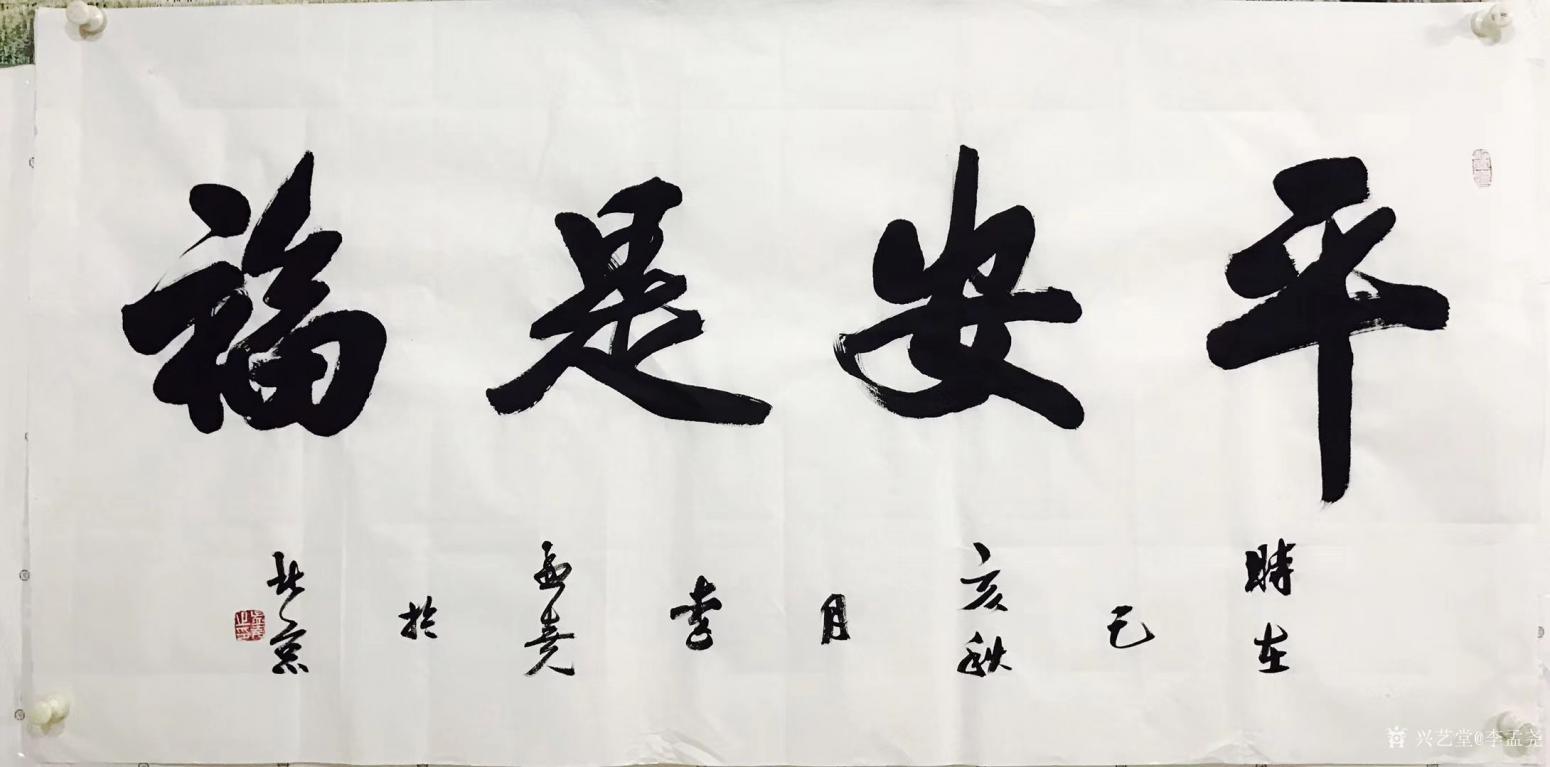 平安是福
時在己亥秋月李孟堯於北京
兴艺堂@李孟尧